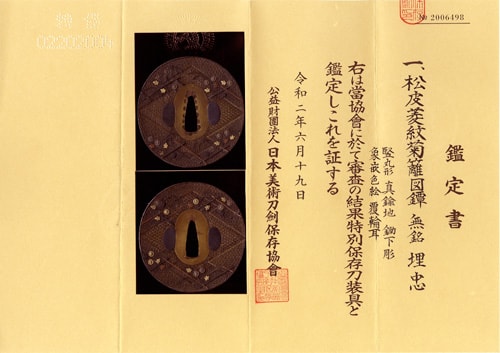 鑑定書
一、松皮菱紋菊籬図鐔 無銘 埋忠
竪丸形 真鍮地 鋤下彫
象嵌色絵 覆輪耳
右は當協會に於て審査の結果特別保存刀装具と
鑑定しこれを証する
令和二年六月十九日
公益財團法人 日本美術刀劍保存協會
№ 2006498